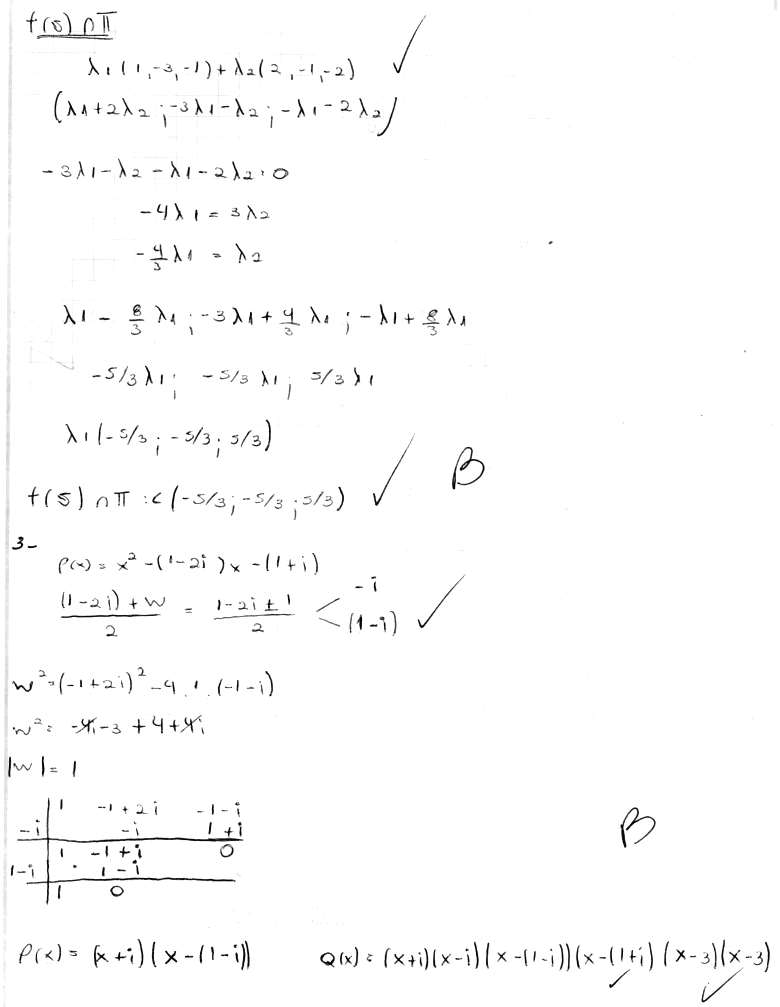 f(S) ∩ Π
λ1(1,-3,-1)+λ2(2,-1,-2)
(λ1+2λ2 ; -3λ1-λ2 ; -λ1-2λ2)
-3λ1-λ2-λ1-2λ2=0
-4λ1 = 3λ2
-4/3 λ1 = λ2
λ1 - 8/3 λ1 ; -3λ1 + 4/3 λ1 ; -λ1 + 8/3 λ1
-5/3 λ1 ; -5/3 λ1 ; 5/3 λ1
λ1(-5/3 ; -5/3 ; 5/3)
B
f(S) ∩ Π : < (-5/3 ; -5/3 ; 5/3)
3-
P(x) = x² -(1-2i)x -(1+i)
((1-2i)+w)/2 = (1-2i±1)/2 < -i
(1-i)
w²=(-1+2i)²-4.1.(-1-i)
w²= -4i-3+4+4i
|w|= 1
1 -1+2i -1-i
-i -i 1+i
1 -1+i 0
1-i 1-i
1 0
B
P(x) = (x+i)(x-(1-i)) Q(x) = (x+i)(x-i)(x-(1-i))(x-(1+i)(x-3)(x-3)